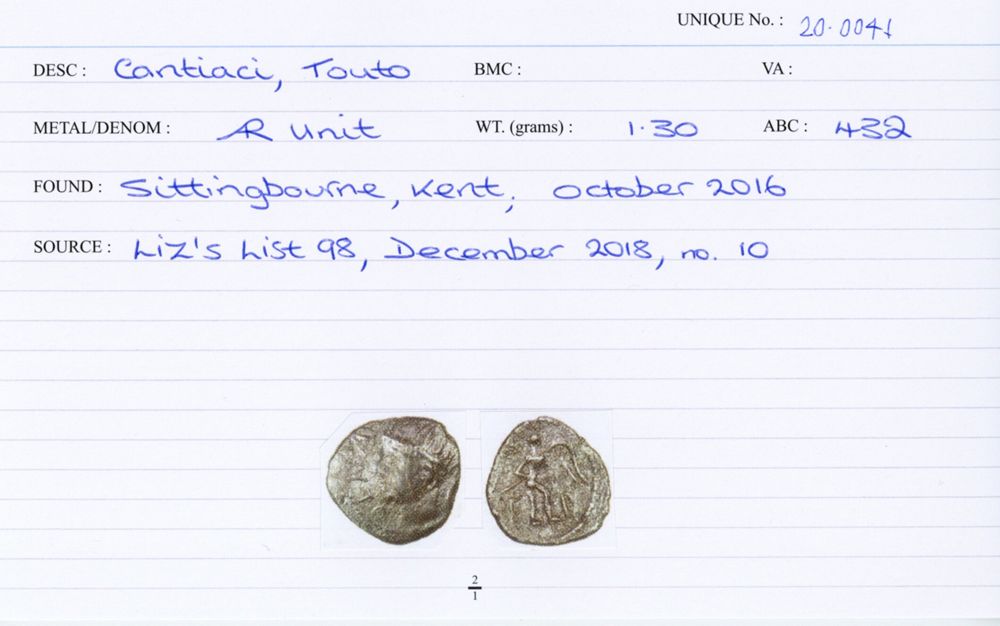 UNIQUE No. : 20.0041
DESC : Cantiaci, Touto BMC : VA :
METAL/DENOM : AR Unit WT. (grams) : 1.30 ABC : 432
FOUND : Sittingbourne, Kent, October 2016
SOURCE : Liz's List 98, December 2018, no. 10
2
1